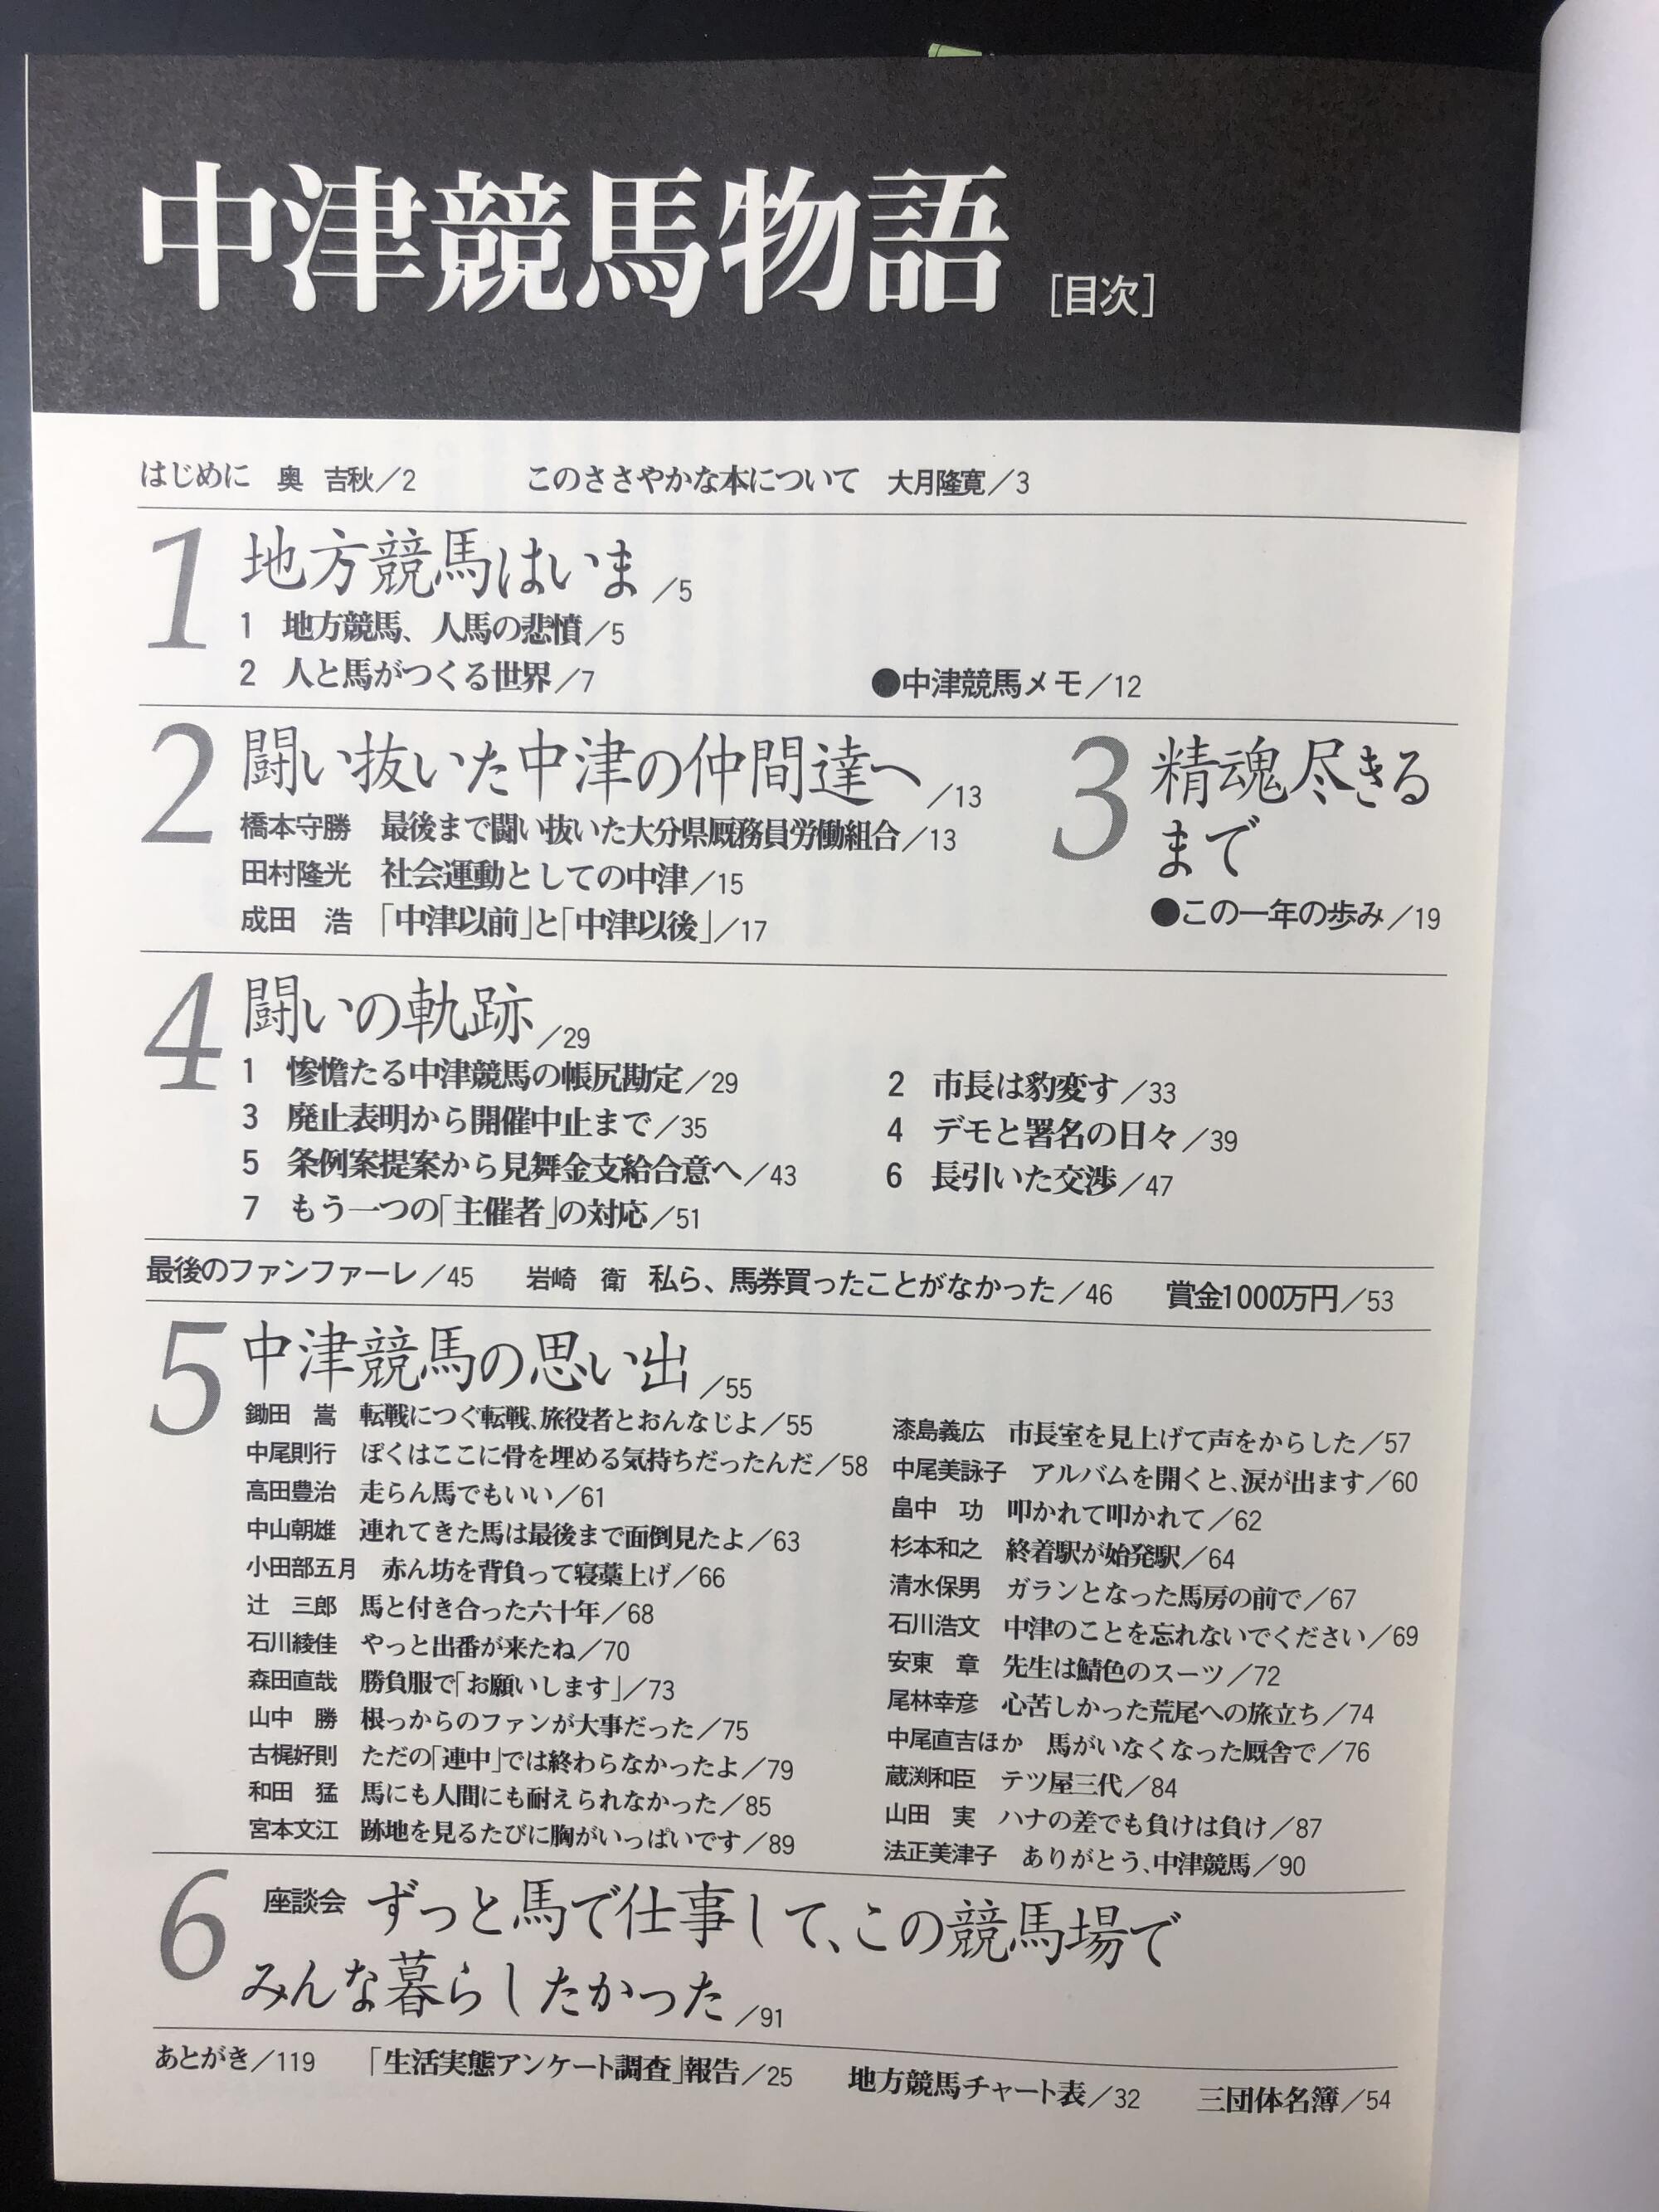 中津競馬物語 [目次]
はじめに 奥 吉秋／2 このささやかな本について 大月隆寛／3
1 地方競馬はいま／5
1 地方競馬、人馬の悲憤／5
2 人と馬がつくる世界／7 ●中津競馬メモ／12
2 闘い抜いた中津の仲間達へ／13
橋本守勝 最後まで闘い抜いた大分県厩務員労働組合／13
田村隆光 社会運動としての中津／15
成田 浩 「中津以前」と「中津以後」／17
3 精魂尽きる
まで
●この一年の歩み／19
4 闘いの軌跡／29
1 惨憺たる中津競馬の帳尻勘定／29 2 市長は豹変す／33
3 廃止表明から開催中止まで／35 4 デモと署名の日々／39
5 条例案提案から見舞金支給合意へ／43 6 長引いた交渉／47
7 もう一つの「主催者」の対応／51
最後のファンファーレ／45 岩崎 衛 私ら、馬券買ったことがなかった／46 賞金1000万円／53
5 中津競馬の思い出／55
鋤田 嵩 転戦につぐ転戦、旅役者とおんなじよ／55 漆島義広 市長室を見上げて声をからした／57
中尾則行 ぼくはここに骨を埋める気持ちだったんだ／58 中尾美詠子 アルバムを開くと、涙が出ます／60
高田豊治 走らん馬でもいい／61 畠中 功 叩かれて叩かれて／62
中山朝雄 連れてきた馬は最後まで面倒見たよ／63 杉本和之 終着駅が始発駅／64
小田部五月 赤ん坊を背負って寝藁上げ／66 清水保男 ガランとなった馬房の前で／67
辻 三郎 馬と付き合った六十年／68 石川浩文 中津のことを忘れないでください／69
石川綾佳 やっと出番が来たね／70 安東 章 先生は鯖色のスーツ／72
森田直哉 勝負服で「お願いします」／73 尾林幸彦 心苦しかった荒尾への旅立ち／74
山中 勝 根っからのファンが大事だった／75 中尾直吉ほか 馬がいなくなった厩舎で／76
古梶好則 ただの「連中」では終わらなかったよ／79 蔵渕和臣 テツ屋三代／84
和田 猛 馬にも人間にも耐えられなかった／85 山田 実 ハナの差でも負けは負け／87
宮本文江 跡地を見るたびに胸がいっぱいです／89 法正美津子 ありがとう、中津競馬／90
6 座談会 ずっと馬で仕事して、この競馬場で
みんな暮らしたかった／91
あとがき／119 「生活実態アンケート調査」報告／25 地方競馬チャート表／32 三団体名簿／54